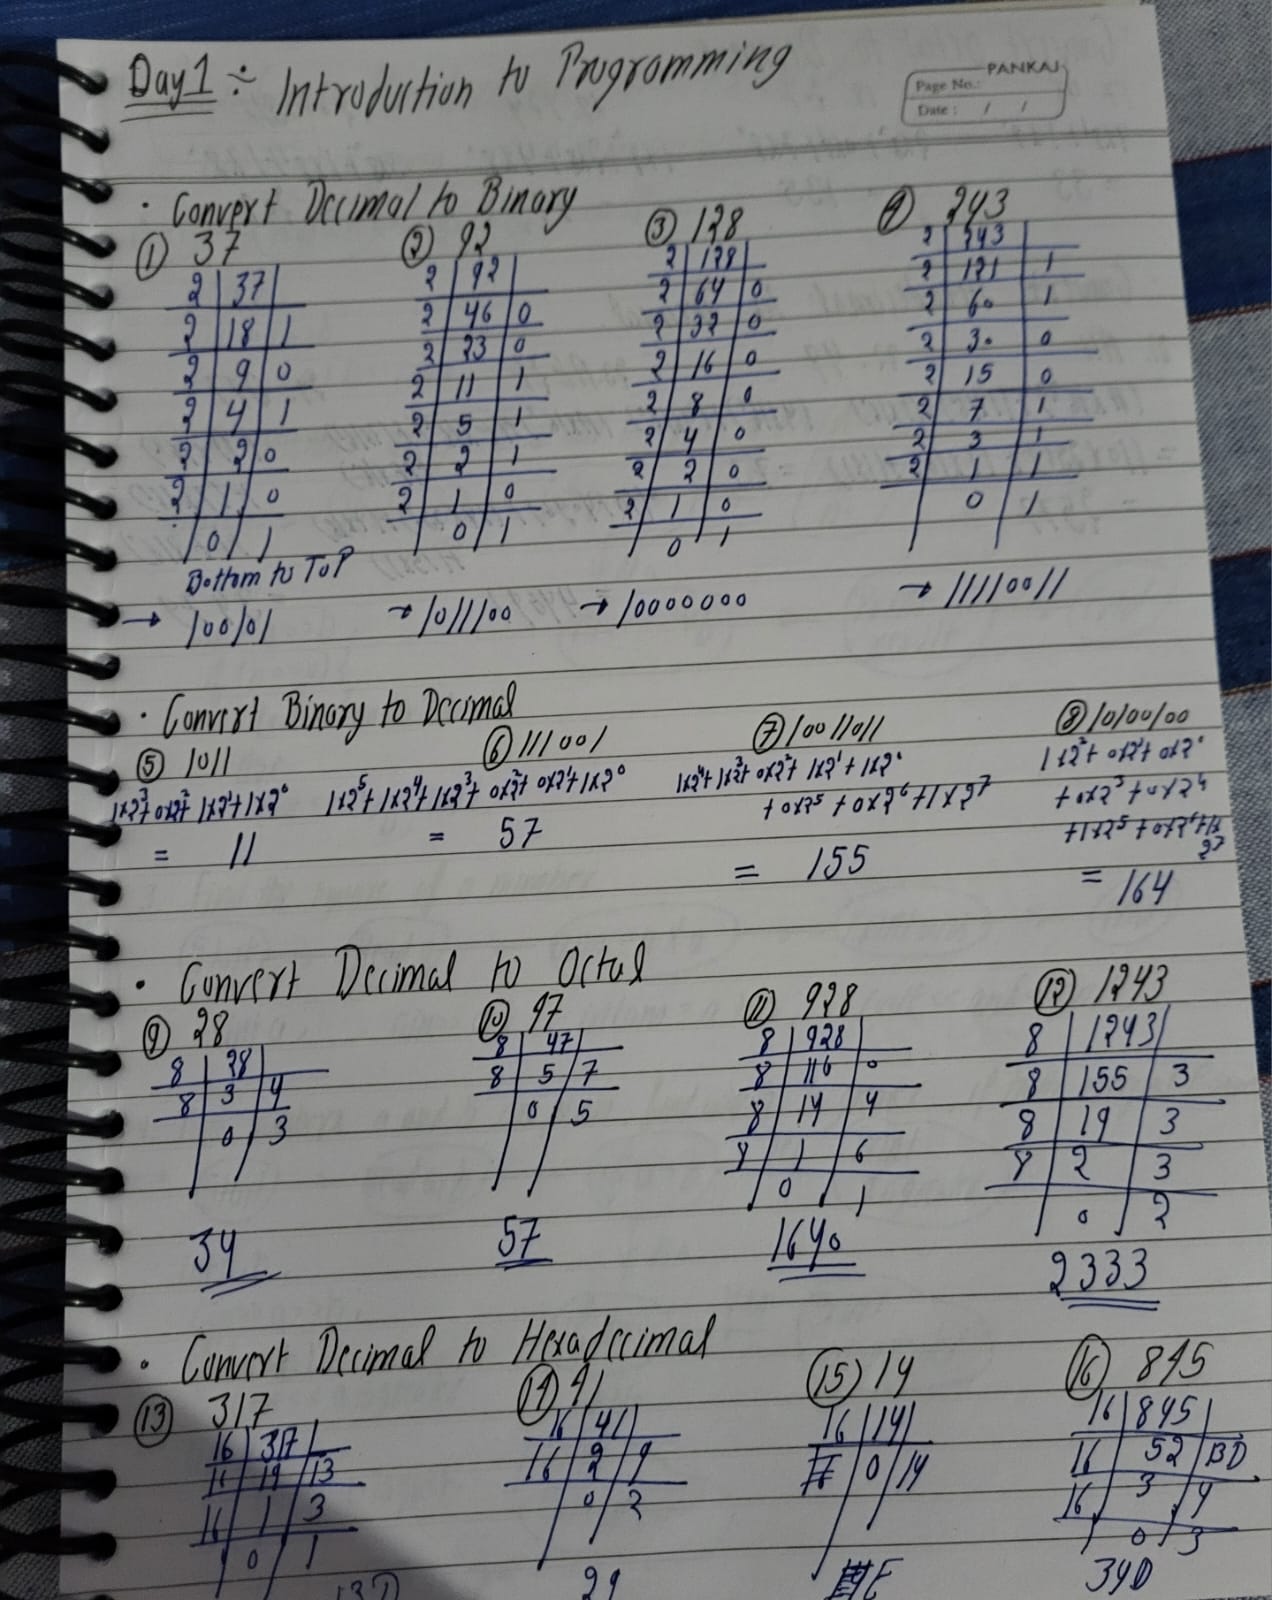 Day 1 ÷ Introduction to Programming
PANKAJ
Page No.:
Date : / /
· Convert Decimal to Binary
① 37 ② 92 ③ 128 ④ 243
2 37
2 18 1
2 9 0
2 4 1
2 2 0
2 1 0
0 1
Bottom to ToP
→ 100101
2 92
2 46 0
2 23 0
2 11 1
2 5 1
2 2 1
2 1 0
0 1
→ 1011100
2 128
2 64 0
2 32 0
2 16 0
2 8 0
2 4 0
2 2 0
2 1 0
0 1
→ 10000000
2 243
2 121 1
2 60 1
2 30 0
2 15 0
2 7 1
2 3 1
2 1 1
0 1
→ 11110011
· Convert Binary to Decimal
⑤ 1011
1x2³+ 0x2²+ 1x2¹+1x2⁰
= 11
⑥ 111001
1x2⁵+1x2⁴+1x2³+ 0x2²+ 0x2¹+1x2⁰
= 57
⑦ 10011011
1x2⁴+1x2³+ 0x2²+ 1x2¹+1x2⁰
+0x2⁵ +0x2⁶+1x2⁷
= 155
⑧ 10100100
1x2²+ 0x2¹+ 0x2⁰
+0x2³+0x2⁴
+1x2⁵ +0x2⁶+1x
2⁷
= 164
· Convert Decimal to Octal
⑨ 28
8 28
8 3 4
0 3
34
⑩ 47
8 47
8 5 7
0 5
57
⑪ 928
8 928
8 116 0
8 14 4
8 1 6
0 1
1640
⑫ 1243
8 1243
8 155 3
8 19 3
8 2 3
0 2
2333
· Convert Decimal to Hexadecimal
⑬ 317
16 317
16 19 13
16 1 3
0 1
13D
⑭ 41
16 41
16 2 9
0 2
29
⑮ 14
16 14
0 14
E
⑯ 845
16 845
16 52 13D
16 3 4
0 3
34D